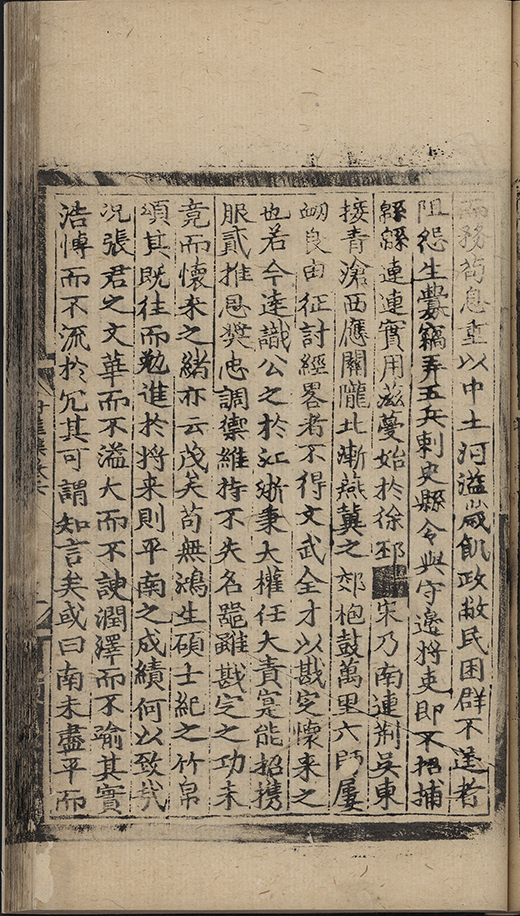 而務苟息重以中土河溢歲飢政敝民困群不逞者
阻怨生釁竊弄五兵刺史縣令與守邊將吏即不招捕
緜緜連連實用滋蔓始於徐邳宋乃南連荆吴東
接青滄西應關隴北漸燕冀之郊枹鼓萬里六師屢
衂良由征討經畧者不得文武全才以戡定懷來之
也若今逹識公之於江浙秉大權任大責寔能招携
服貳推恩奬忠調禦維持不失名器雖戡定之功未
竟而懷来之緒亦云茂矣苟無鴻生碩士紀之竹帛
頌其既往而勉進於将来則平南之成績何以致㢤
况張君之文華而不溢大而不諛潤繹而不瑜其實
浩博而不流於冗其可謂知言矣或曰南未盡平而